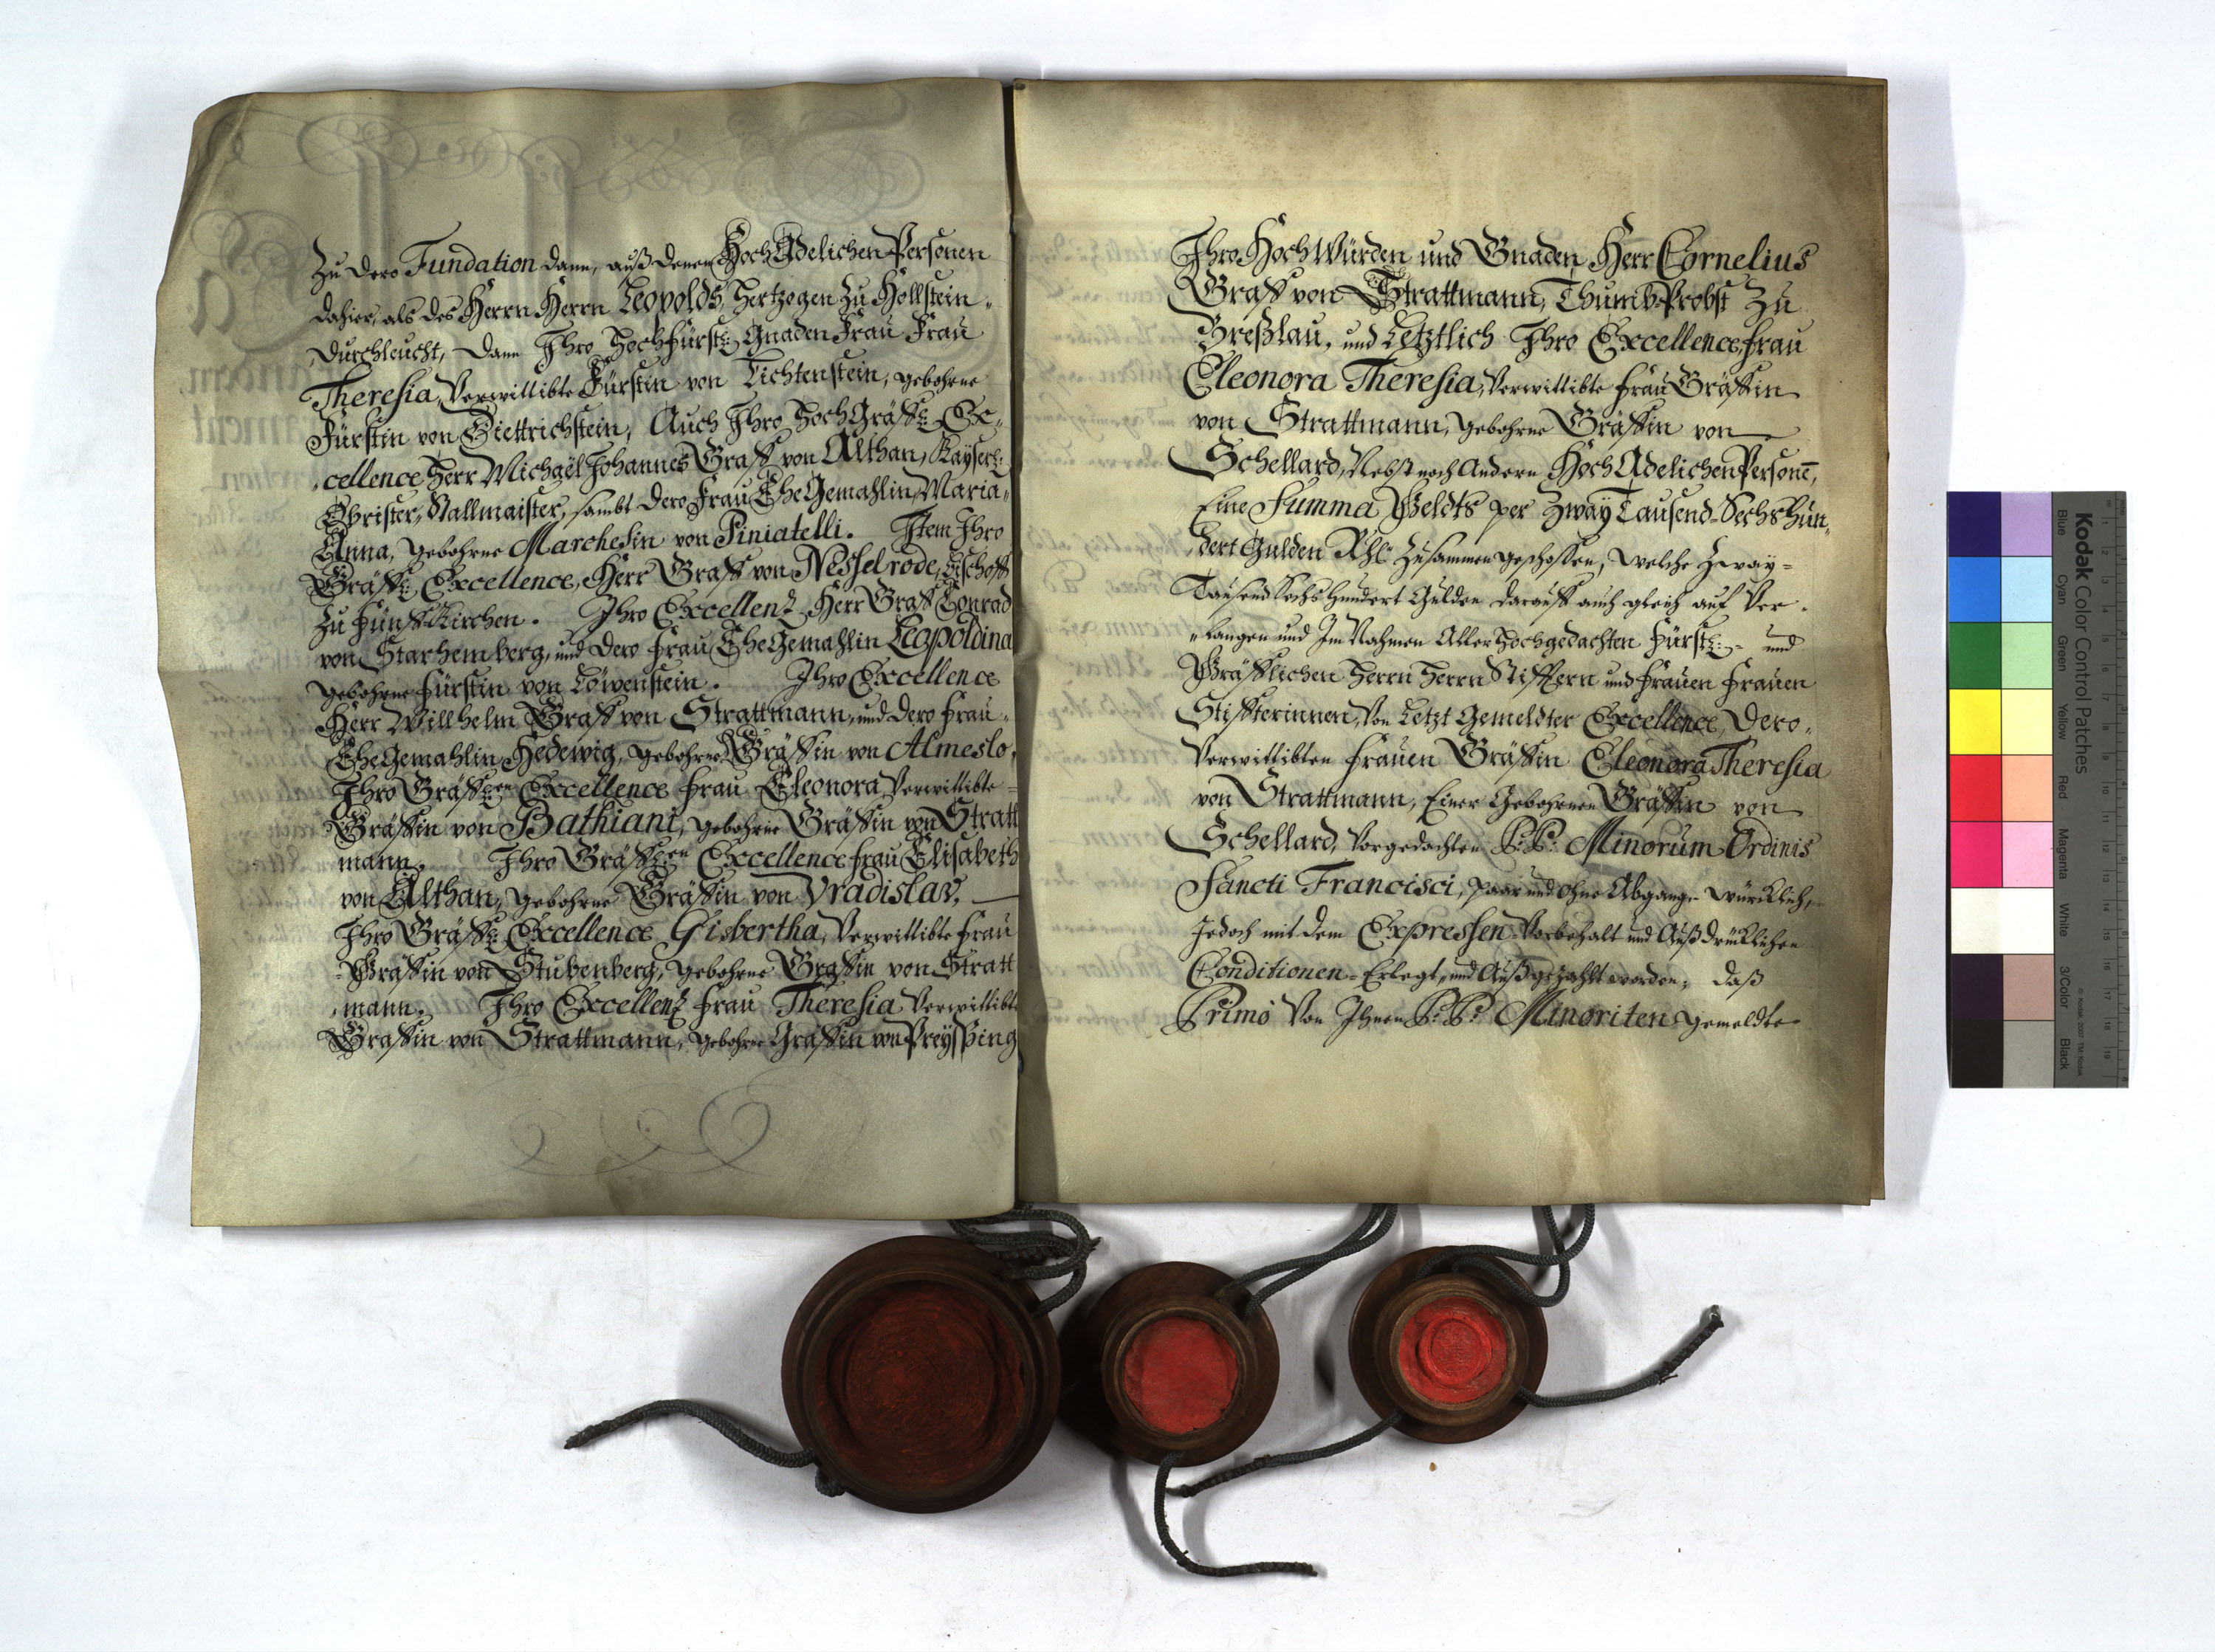 Zu dero Fundation dann, auß denen Hoch Adelichen Persohnen
dahier, als des Herrn Herrn Leopolds, Hertzogen Zu Hollstein
Durchleucht, dann Ihro Hochfürstl: Gnaden Frau Frau
Theresia, Verwittibte Fürstin von Lichtenstein, gebohrne
Fürstin von Diettrichstein, Auch Ihro Hoch Gräffl: Ex-
cellence Herr Michaël Johannes Graff von Althan, Kayserl:
Obrister, Stallmaister, sambt dero Frau Ehe Gemahlin, Maria
Anna, gebohrne Marchesin von Piniatelli. Item Ihro
Gräffl: Excellence, Herr Graff von Nesselrode, Bischoff
Zu Fünffkirchen. Ihro Excellenz Herr Graff Conrad
von Starhemberg, und dero Frau Ehe Gemahlin Leopoldina
gebohrne Fürstin von Löwenstein. Ihro Excellence
Herr Willhelm Graff von Strattmann, und dero Frau
Ehe Gemahlin Hedewig, gebohrne Gräffin von Almeslo,
Ihro Gräffl:en Excellence Frau Eleonora, Verwittibte
Gräffin von Bathiani, gebohrne Gräffin von Stratt
mann, Ihro Gräffl:en Excellence Frau Elisabeth
von Althan, gebohrne Gräffin von Vradislav,
Ihro Gräffl: Excellence Gisbertha, Verwittibte Frau
Gräffin von Stubenberg, gebohrne Gräffin von Stratt
mann. Ihro Excellenz Frau Theresia Verwittibte
Gräffin von Strattmann, gebohrne Gräffin von Preyssing
Ihro Hoch Würden und Gnaden, Herr Cornelius
Graff von Strattmann, Thumb-Probst Zu
Breßlau, und Letztlich Ihro Excellence, Frau
Eleonora Theresia, Verwittibte Frau Gräffin
von Strattmann, gebohrne Gräffin von
Schellard, Nebst noch Andern Hoch Adelichen Persone̅,
Eine Summa Geldts per Zway Tausend-Sechs Hun-
dert Gulden Rhl: Zusammen geschossen, welche Zway-
Tausend Sechs Hundert Gulden darauff auch gleich auf Ver-
langen und Im Nahmen Aller Hochgedachten Fürstl:- und
Gräfflichen Herrn Herrn Stifftern und Frauen Frauen
Stiffterinnen, Von Letzt Gemeldter Excellence, dero
Verwittibten Frauen Gräffin Eleonora Theresia
von Strattmann, Einer Gebohrnen Gräffin von
Schellard, Vorgedachten P: P: Minorum Ordinis
Sancti Francisci, paar und ohne Abgang würcklich,
Jedoch mit dem Expressen Vorbehalt und Außdrücklichen
Conditionen Erlegt, und Außgezahlt worden; daß
Primo Von Ihnen P: P: Minoriten gemeldte
Kodak Color Control Patches
Blue Cyan Green Yellow Red Magenta White 3/Color Black